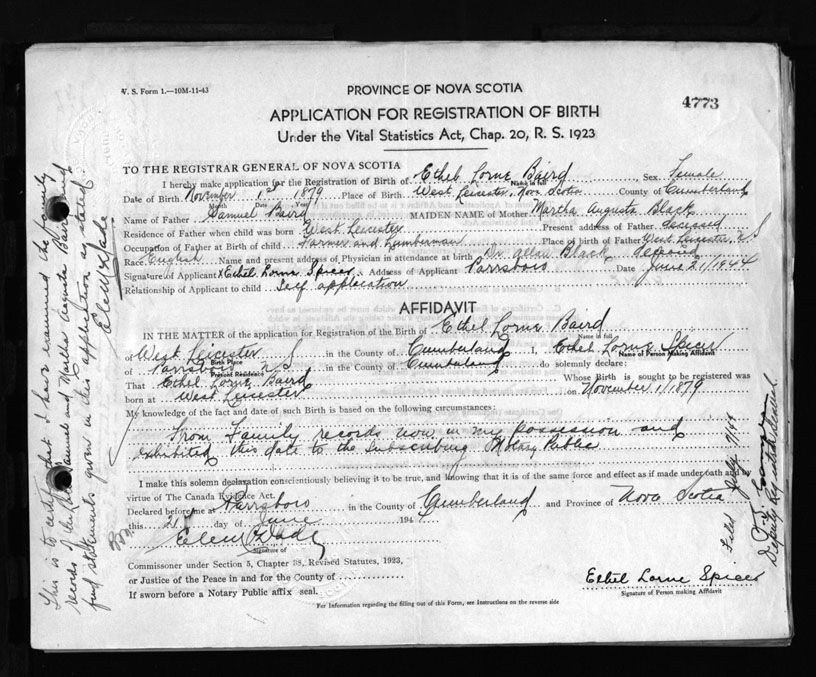 V. S. Form 1.—10M-11-43
PROVINCE OF NOVA SCOTIA
4773
APPLICATION FOR REGISTRATION OF BIRTH
Under the Vital Statistics Act, Chap. 20, R. S. 1923
TO THE REGISTRAR GENERAL OF NOVA SCOTIA
I hereby make application for the Registration of Birth of Ethel Lorne Baird, Sex Female
Name in full
Date of Birth November 1st 1879 Place of Birth West Leicester, Nova Scotia County of Cumberland
Month Date Year
Name of Father Samuel Baird MAIDEN NAME of Mother Martha Augusta Black
Residence of Father when child was born West Leicester Present address of Father Deceased
Occupation of Father at Birth of child Farmer and Lumberman Place of birth of Father West Leicester N S
Race English Name and present address of Physician in attendance at birth Dr Allan Black Deceased
Signature of Applicant x Ethel Lorne Spicer Address of Applicant Parrsboro Date June 21/1944
Relationship of Applicant to child Self application
AFFIDAVIT
IN THE MATTER of the application for Registration of the Birth of Ethel Lorne Baird
Name in full
of West Leicester in the County of Cumberland I, Ethel Lorne Spicer
Birth Place
Name of Person Making Affidavit
of Parrsboro N S in the County of Cumberland do solemnly declare:
Present Residence
That Ethel Lorne Baird Whose Birth is sought to be registered was
born at West Leicester on November 1/1879
My knowledge of the fact and date of such Birth is based on the following circumstances:
From Family records now in my possession and
exhibited this date to the Subscribing Notary Public
I make this solemn declaration conscientiously believing it to be true, and knowing that it is of the same force and effect as if made under oath and by
virtue of The Canada Evidence Act.
Declared before me at Parrsboro in the County of Cumberland and Province of Nova Scotia
this 21st day of June 1944
Signature of
Commissioner under Section 5, Chapter 38, Revised Statutes, 1923,
or Justice of the Peace in and for the County of
If sworn before a Notary Public affix seal.
Ethel Lorne Spicer
Signature of Person making Affidavit
For Information regarding the filling out of this Form, see Instructions on the reverse side
This is to certify that I have examined the family
records of the late Samuel and Martha Augusta Baird and
find statements given in this application as stated.
Filed July 7/44
Deputy Registrar General